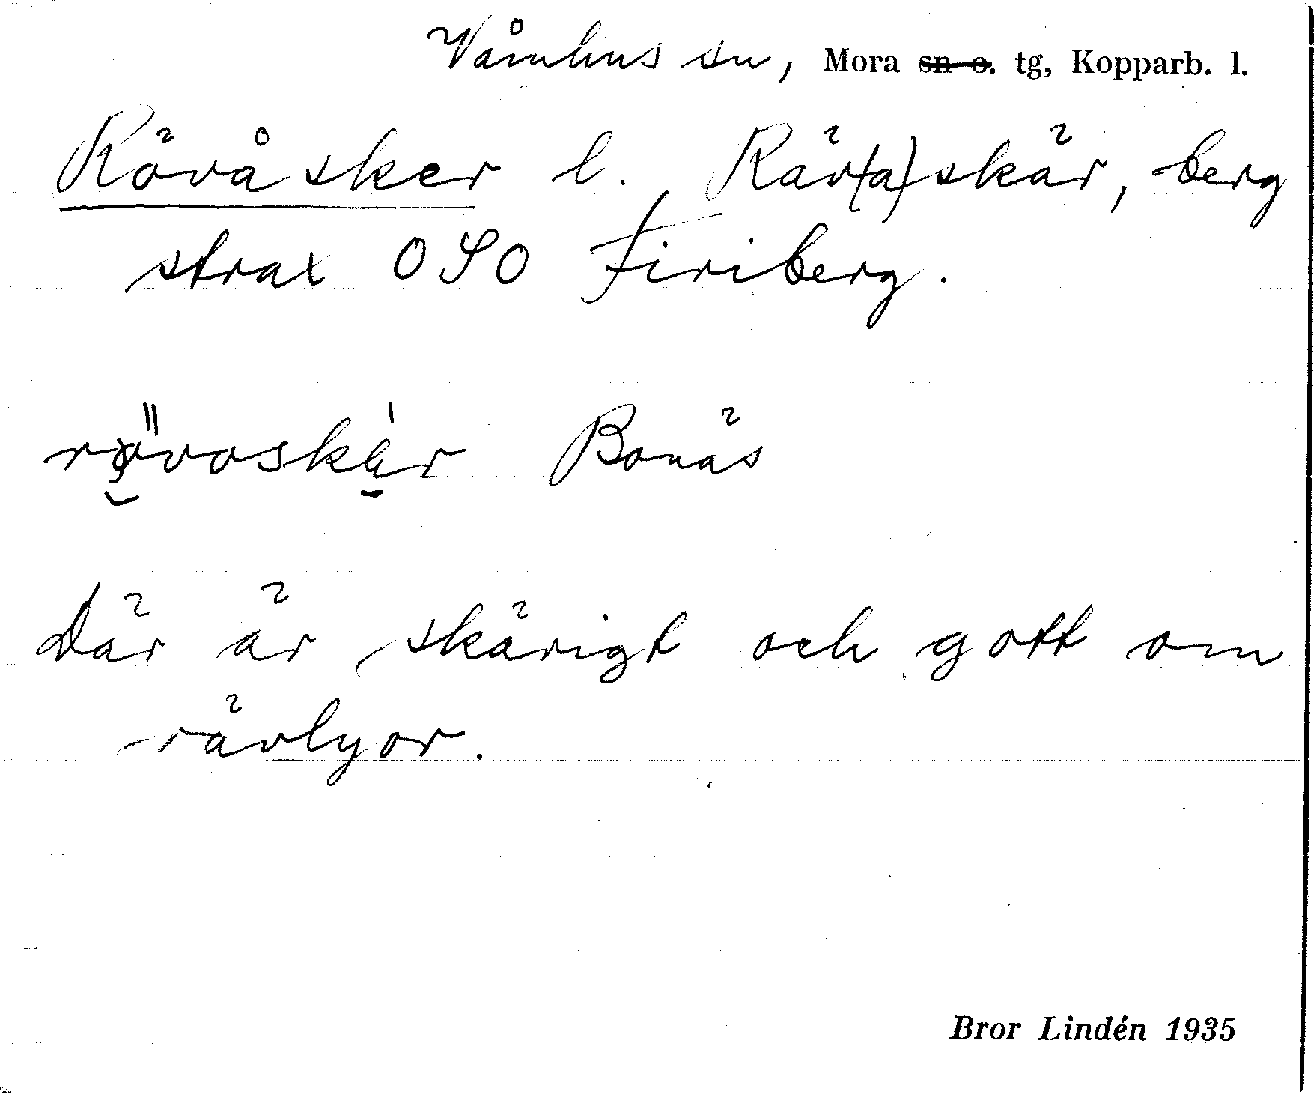 Våmhus sn, Mora sn o. tg, Kopparb. l.
Rövåsker l. Räv(a)skär, berg
strax OSO Firiberg.
rövoskär Bonäs
Där är skärigt och gott om
rävlyor.
Bror Lindén 1935